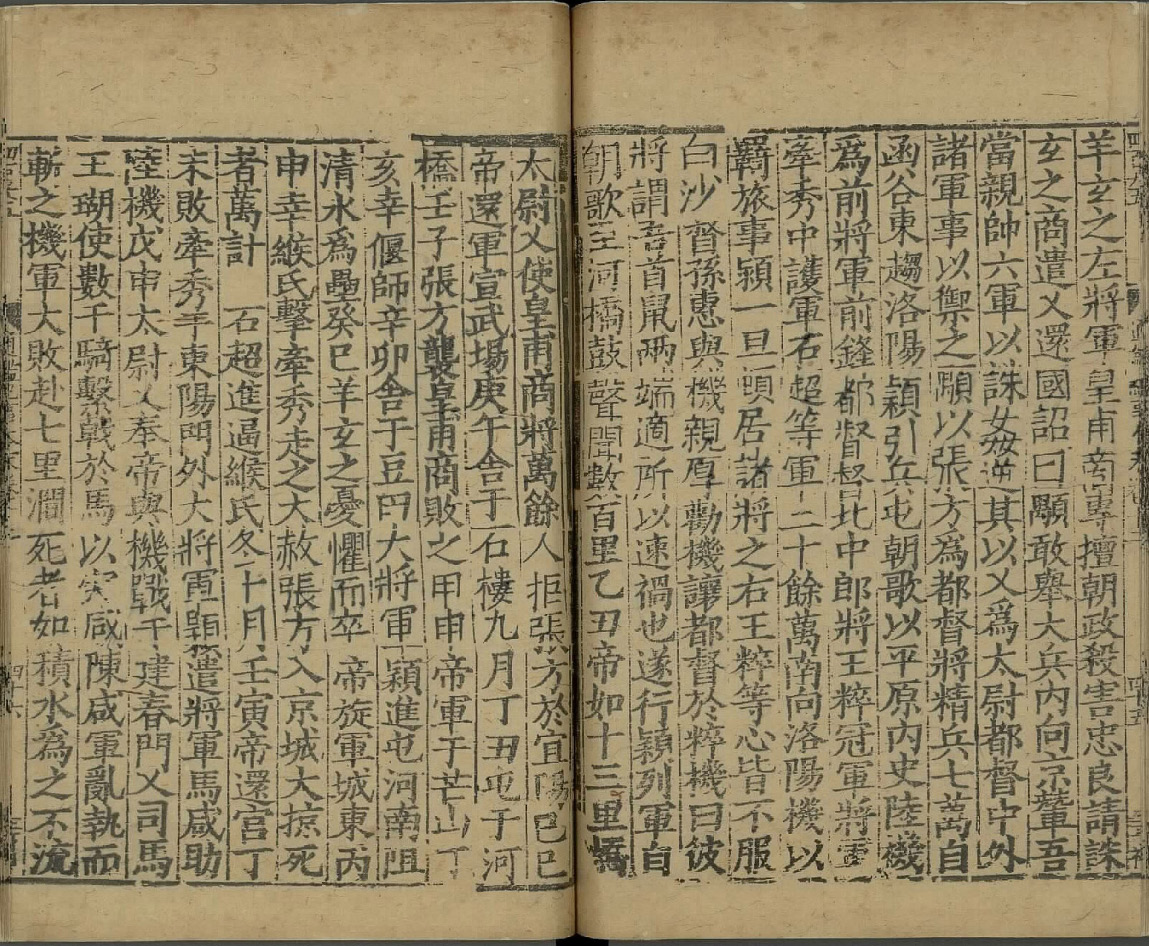 羊玄之左將軍皇甫商專擅朝政殺害忠良請誅
玄之商遣乂還國詔曰顒敢舉大兵內向京輦吾
當親帥六軍以誅姦逆其以乂爲太尉都督中外
諸軍事以禦之顒以張方爲都督將精兵七萬自
函谷東趨洛陽穎引兵屯朝歌以平原內史陸機
爲前將軍前鋒都督督北中郎將王粹冠軍將軍
牽秀中護軍石超等軍二十餘萬南向洛陽機以
羇旅事穎一旦頓居諸將之右王粹等心皆不服
白沙督孫惠與機親厚勸機讓都督於粹機曰彼
將謂吾首鼠兩端適所以速禍也遂行穎列軍自
朝歌至河橋鼓聲聞數百里乙丑帝如十三里橋
太尉乂使皇甫商將萬餘人拒張方於宜陽己巳
帝還軍宣武場庚午舍于石樓九月丁丑屯于河
橋壬子張方襲皇甫商敗之甲申帝軍于芒山丁
亥幸偃師辛卯舍于豆田大將軍穎進屯河南阻
清水爲壘癸巳羊玄之憂懼而卒 帝旋軍城東丙
申幸緱氏擊牽秀走之大赦張方入京城大掠死
者萬計 石超進逼緱氏冬十月壬寅帝還宮丁
未敗牽秀于東陽門外大將軍穎遣將軍馬咸助
陸機戊申太尉乂奉帝與機戰于建春門乂司馬
王瑚使數千騎繫戟於馬以突咸陳咸軍亂執而
斬之機軍大敗赴七里澗死者如積水爲之不流